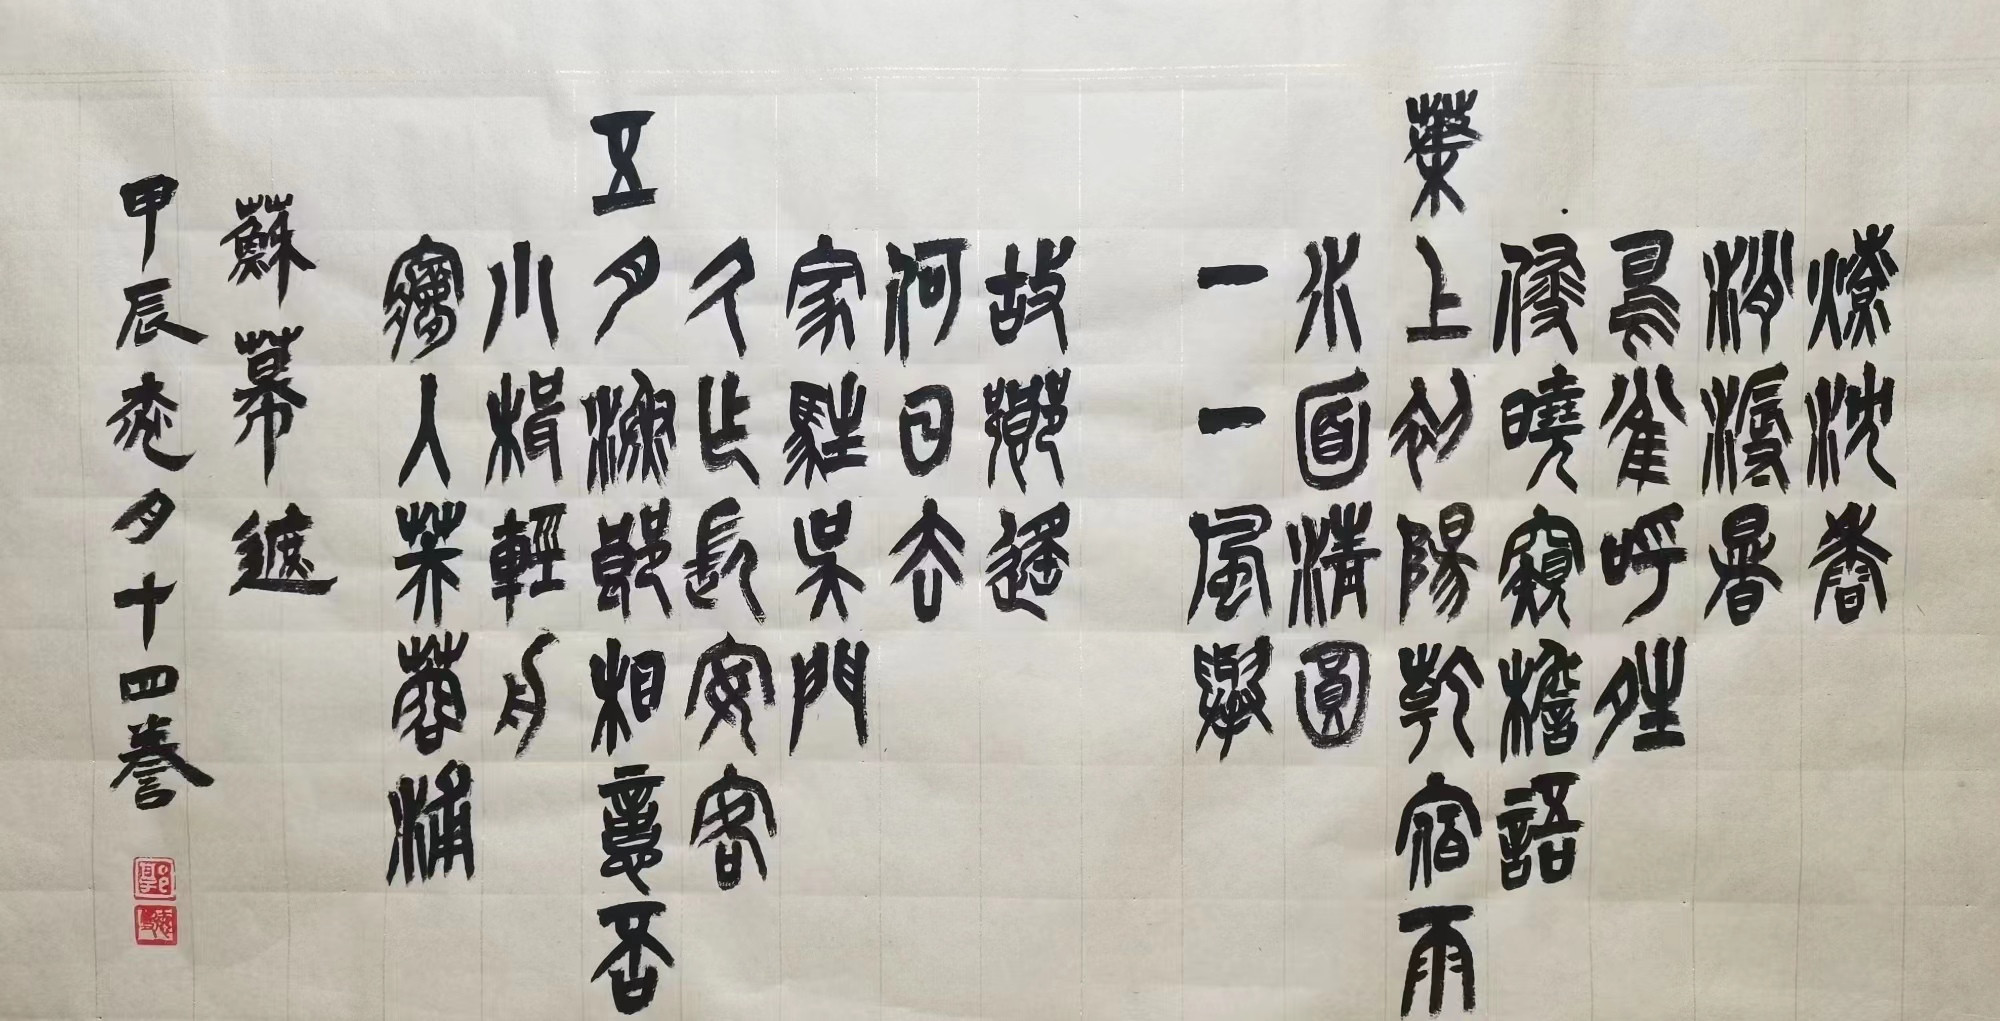 燎沈香
消溽暑
鳥雀呼夝
侵曉窺檐語
葉上初陽乾宿雨
水面清圓
一一風舉
故鄉遙
何日去
家駐吳門
久乍長安客
五月漁郎相意否
小楫輕舟
夢入芙蓉浦
蘇幕遮
甲辰月十四誉
郭